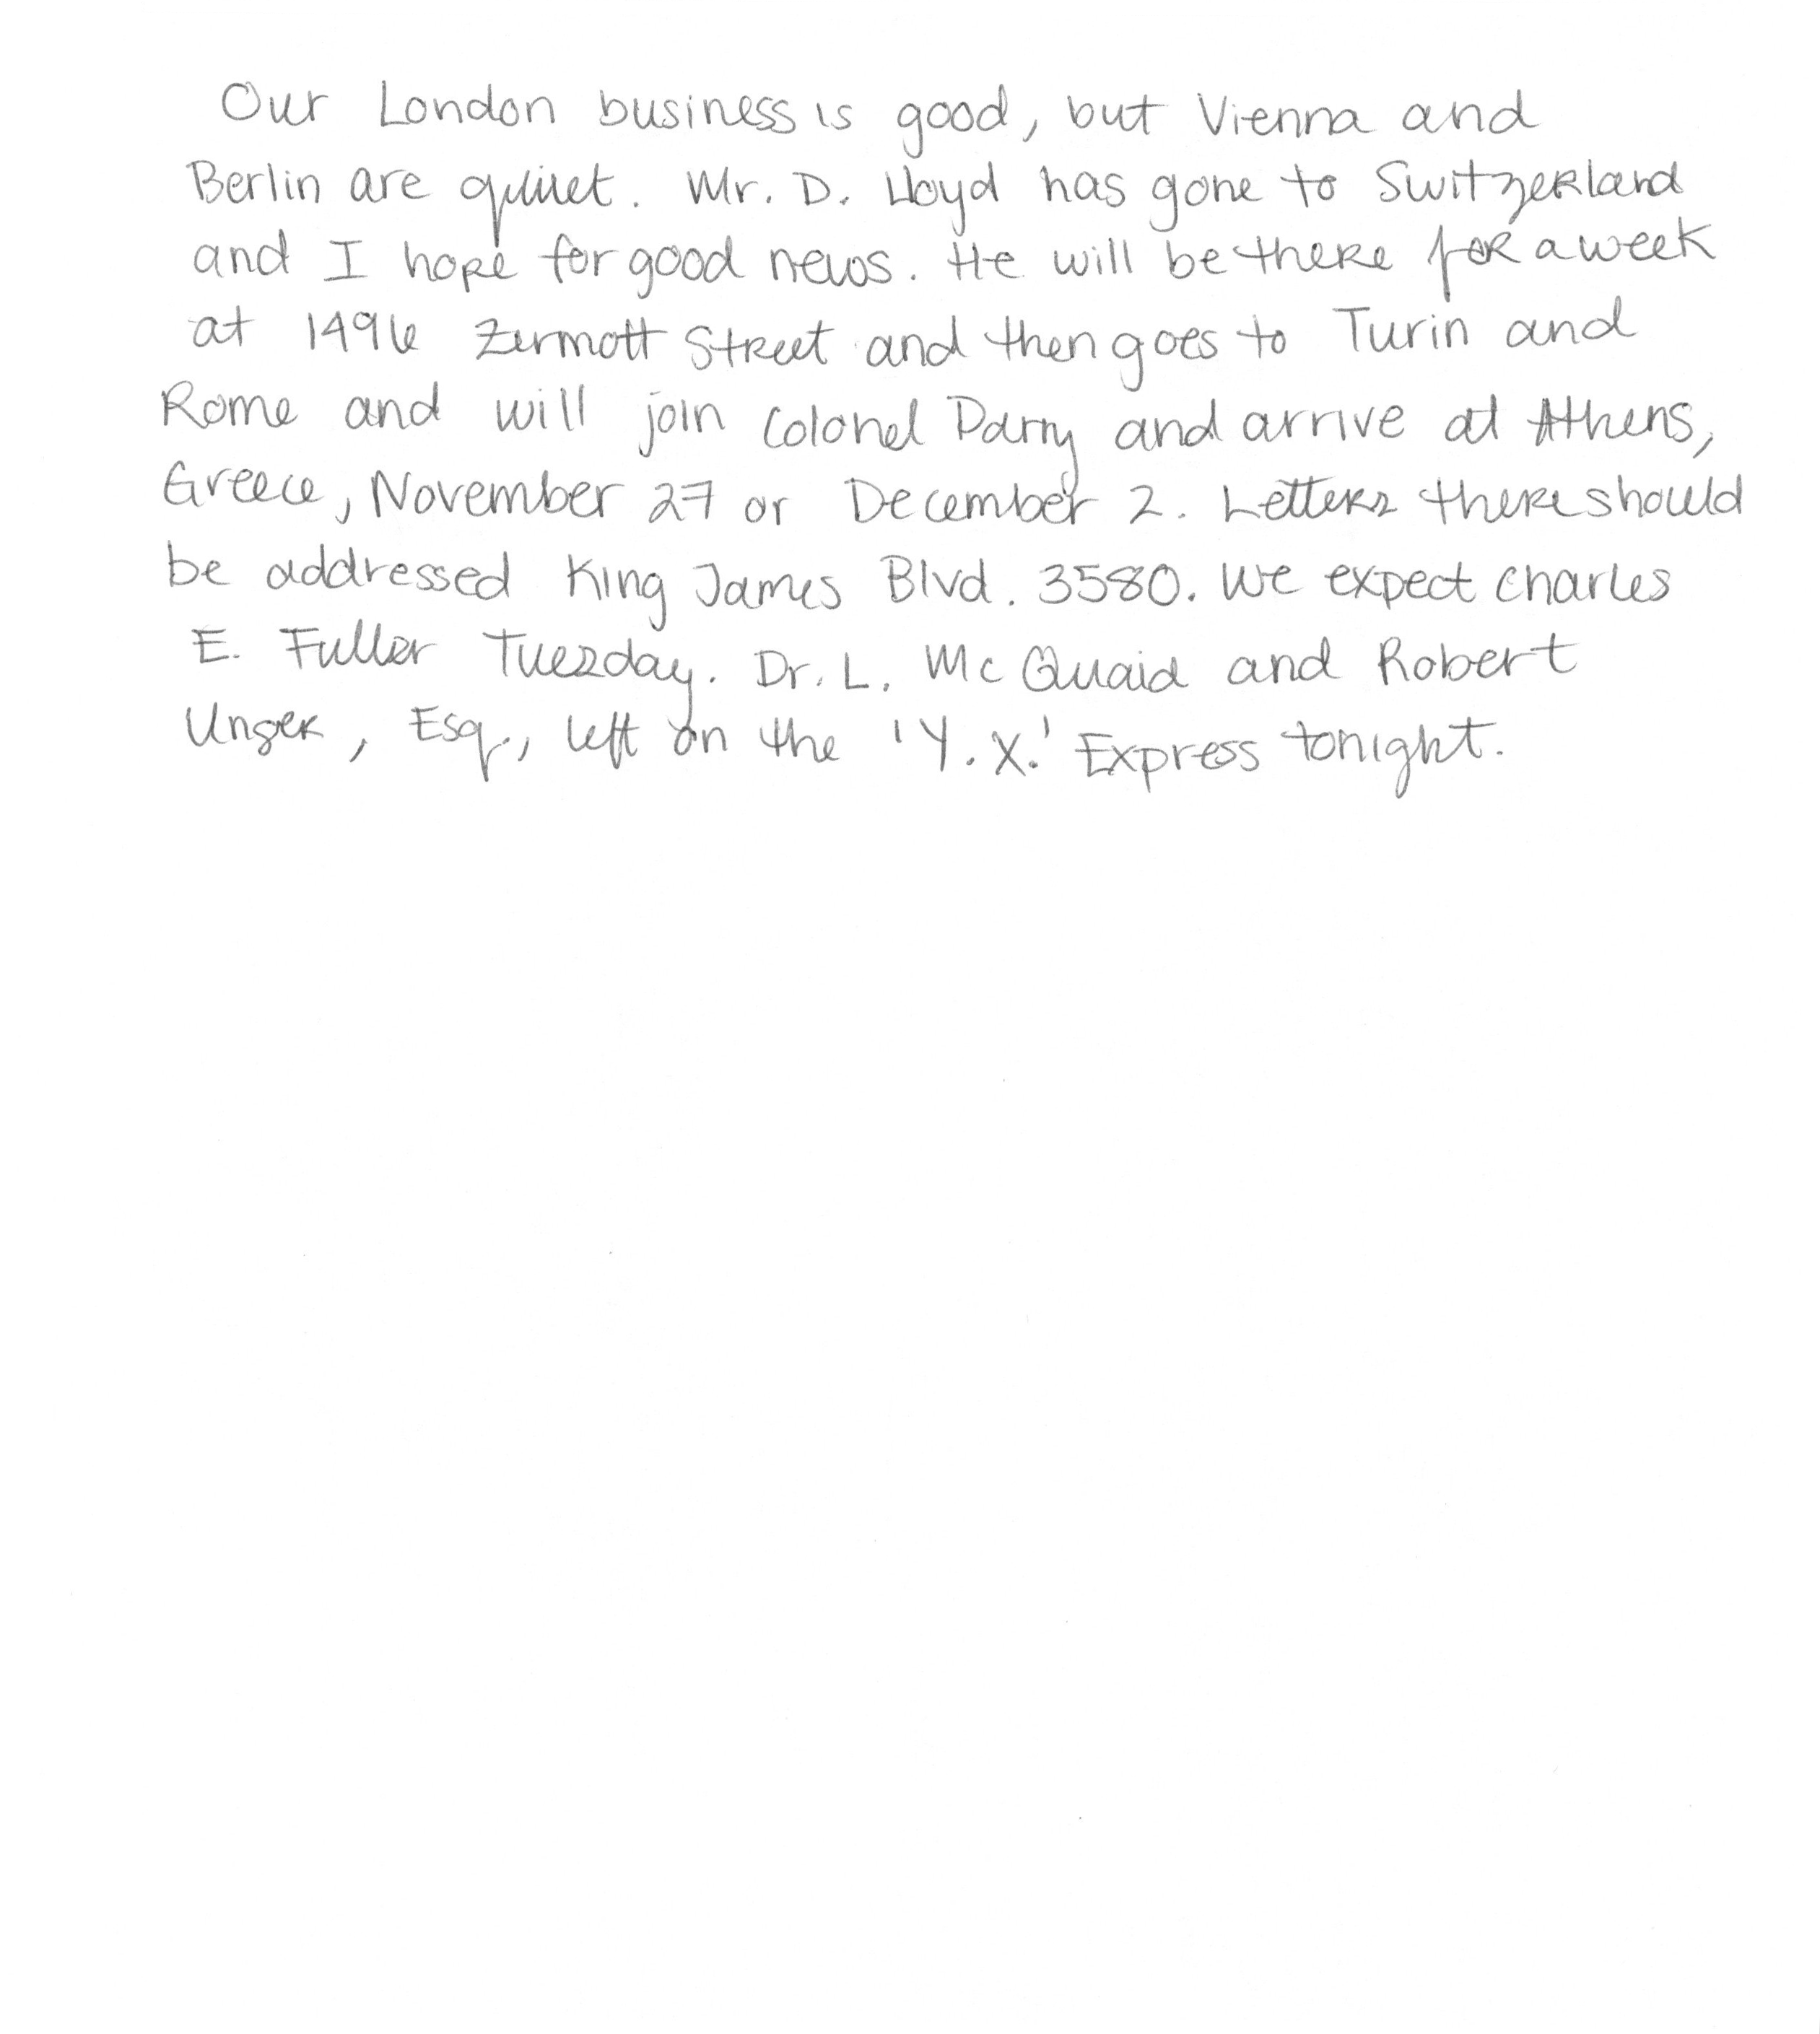 Our London business is good, but Vienna and
Berlin are quiet. Mr. D. Lloyd has gone to Switzerland
and I hope for good news. He will be there for a week
at 1496 Zermott Street and then goes to Turin and
Rome and will join Colonel Parry and arrive at Athens,
Greece, November 27 or December 2. Letters there should
be addressed King James Blvd. 3580. We expect Charles
E. Fuller Tuesday. Dr. L. Mc Quaid and Robert
Unger, Esq., left on the 'Y.X.' Express tonight.